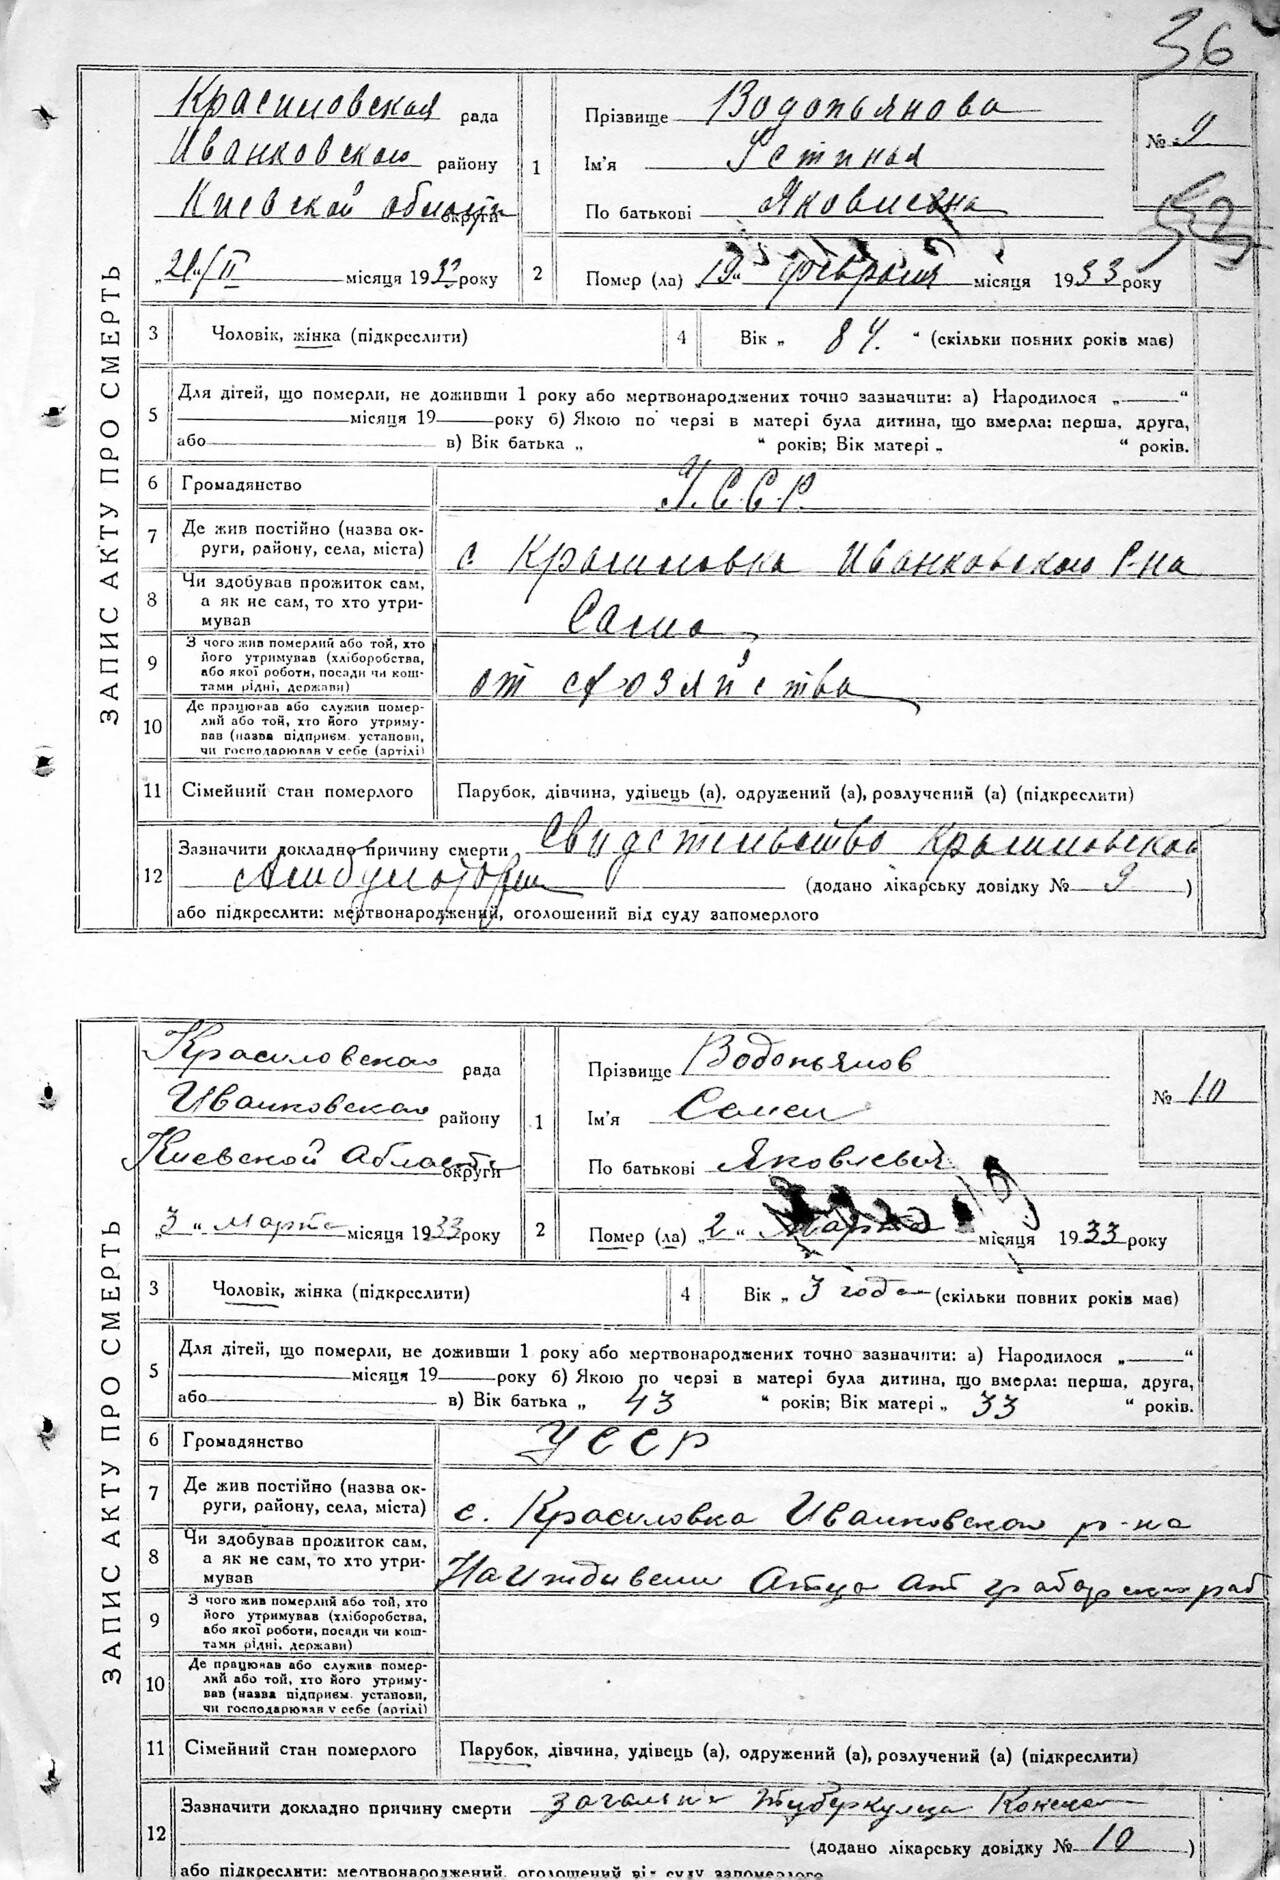 36
ЗАПИС АКТУ ПРО СМЕРТЬ
Красиловская рада
Иванковского району
Киевской области округи
1
Прізвище Водопьянова
Ім'я Устиния
По батькові Яковлевна
№ 9
„21“/II місяця 1933 року
2
Помер (ла) „19“ февраля місяця 1933 року
3 Чоловік, жінка (підкреслити)
4 Вік „ 84. “ (скільки повних років має)
5 Для дітей, що померли, не доживши 1 року або мертвонароджених точно зазначити: а) Народилося „ “
місяця 19 року б) Якою по черзі в матері була дитина, що вмерла: перша, друга,
або в) Вік батька „ “ років; Вік матері „ “ років.
6 Громадянство У.С.С.Р.
7 Де жив постійно (назва ок-
руги, району, села, міста) с Красиловка Иванковского Р-на
8 Чи здобував прожиток сам,
а як не сам, то хто утри-
мував Сама
9 З чого жив померлий або той, хто
його утримував (хліборобства,
або якої роботи, посади чи кош-
тами рідні, держави) от схозяйства
10 Де працював або служив помер-
лий або той, хто його утриму-
вав (назва підприєм. установи,
чи господарював у себе (артілі)
11 Сімейний стан померлого Парубок, дівчина, удівець (а), одружений (а), розлучений (а) (підкреслити)
12 Зазначити докладно причину смерти Свидетельство Красиловской
Амбулатории (додано лікарську довідку № 9 )
або підкреслити: мертвонароджений, оголошений від суду запомерлого
ЗАПИС АКТУ ПРО СМЕРТЬ
Красиловская рада
Иванковского району
Киевской области округи
1
Прізвище Водопьянов
Ім'я Семен
По батькові Яковлевич
№ 10
„3“ Марта місяця 1933 року
2
Помер (ла) „2“ Марта місяця 1933 року
3 Чоловік, жінка (підкреслити)
4 Вік „ 3 года (скільки повних років має)
5 Для дітей, що померли, не доживши 1 року або мертвонароджених точно зазначити: а) Народилося „ “
місяця 19 року б) Якою по черзі в матері була дитина, що вмерла: перша, друга,
або в) Вік батька „ 43 “ років; Вік матері „ 33 “ років.
6 Громадянство УССР
7 Де жив постійно (назва ок-
руги, району, села, міста) с. Красиловка Иванковского р-на
8 Чи здобував прожиток сам,
а як не сам, то хто утри-
мував На иждивении Отца от раб
9 З чого жив померлий або той, хто
його утримував (хліборобства,
або якої роботи, посади чи кош-
тами рідні, держави)
10 Де працював або служив помер-
лий або той, хто його утриму-
вав (назва підприєм. установи,
чи господарював у себе (артілі)
11 Сімейний стан померлого Парубок, дівчина, удівець (а), одружений (а), розлучений (а) (підкреслити)
12 Зазначити докладно причину смерти туберкулеза
(додано лікарську довідку № 10 )
або підкреслити: мертвонароджений, оголошений від суду запомерлого